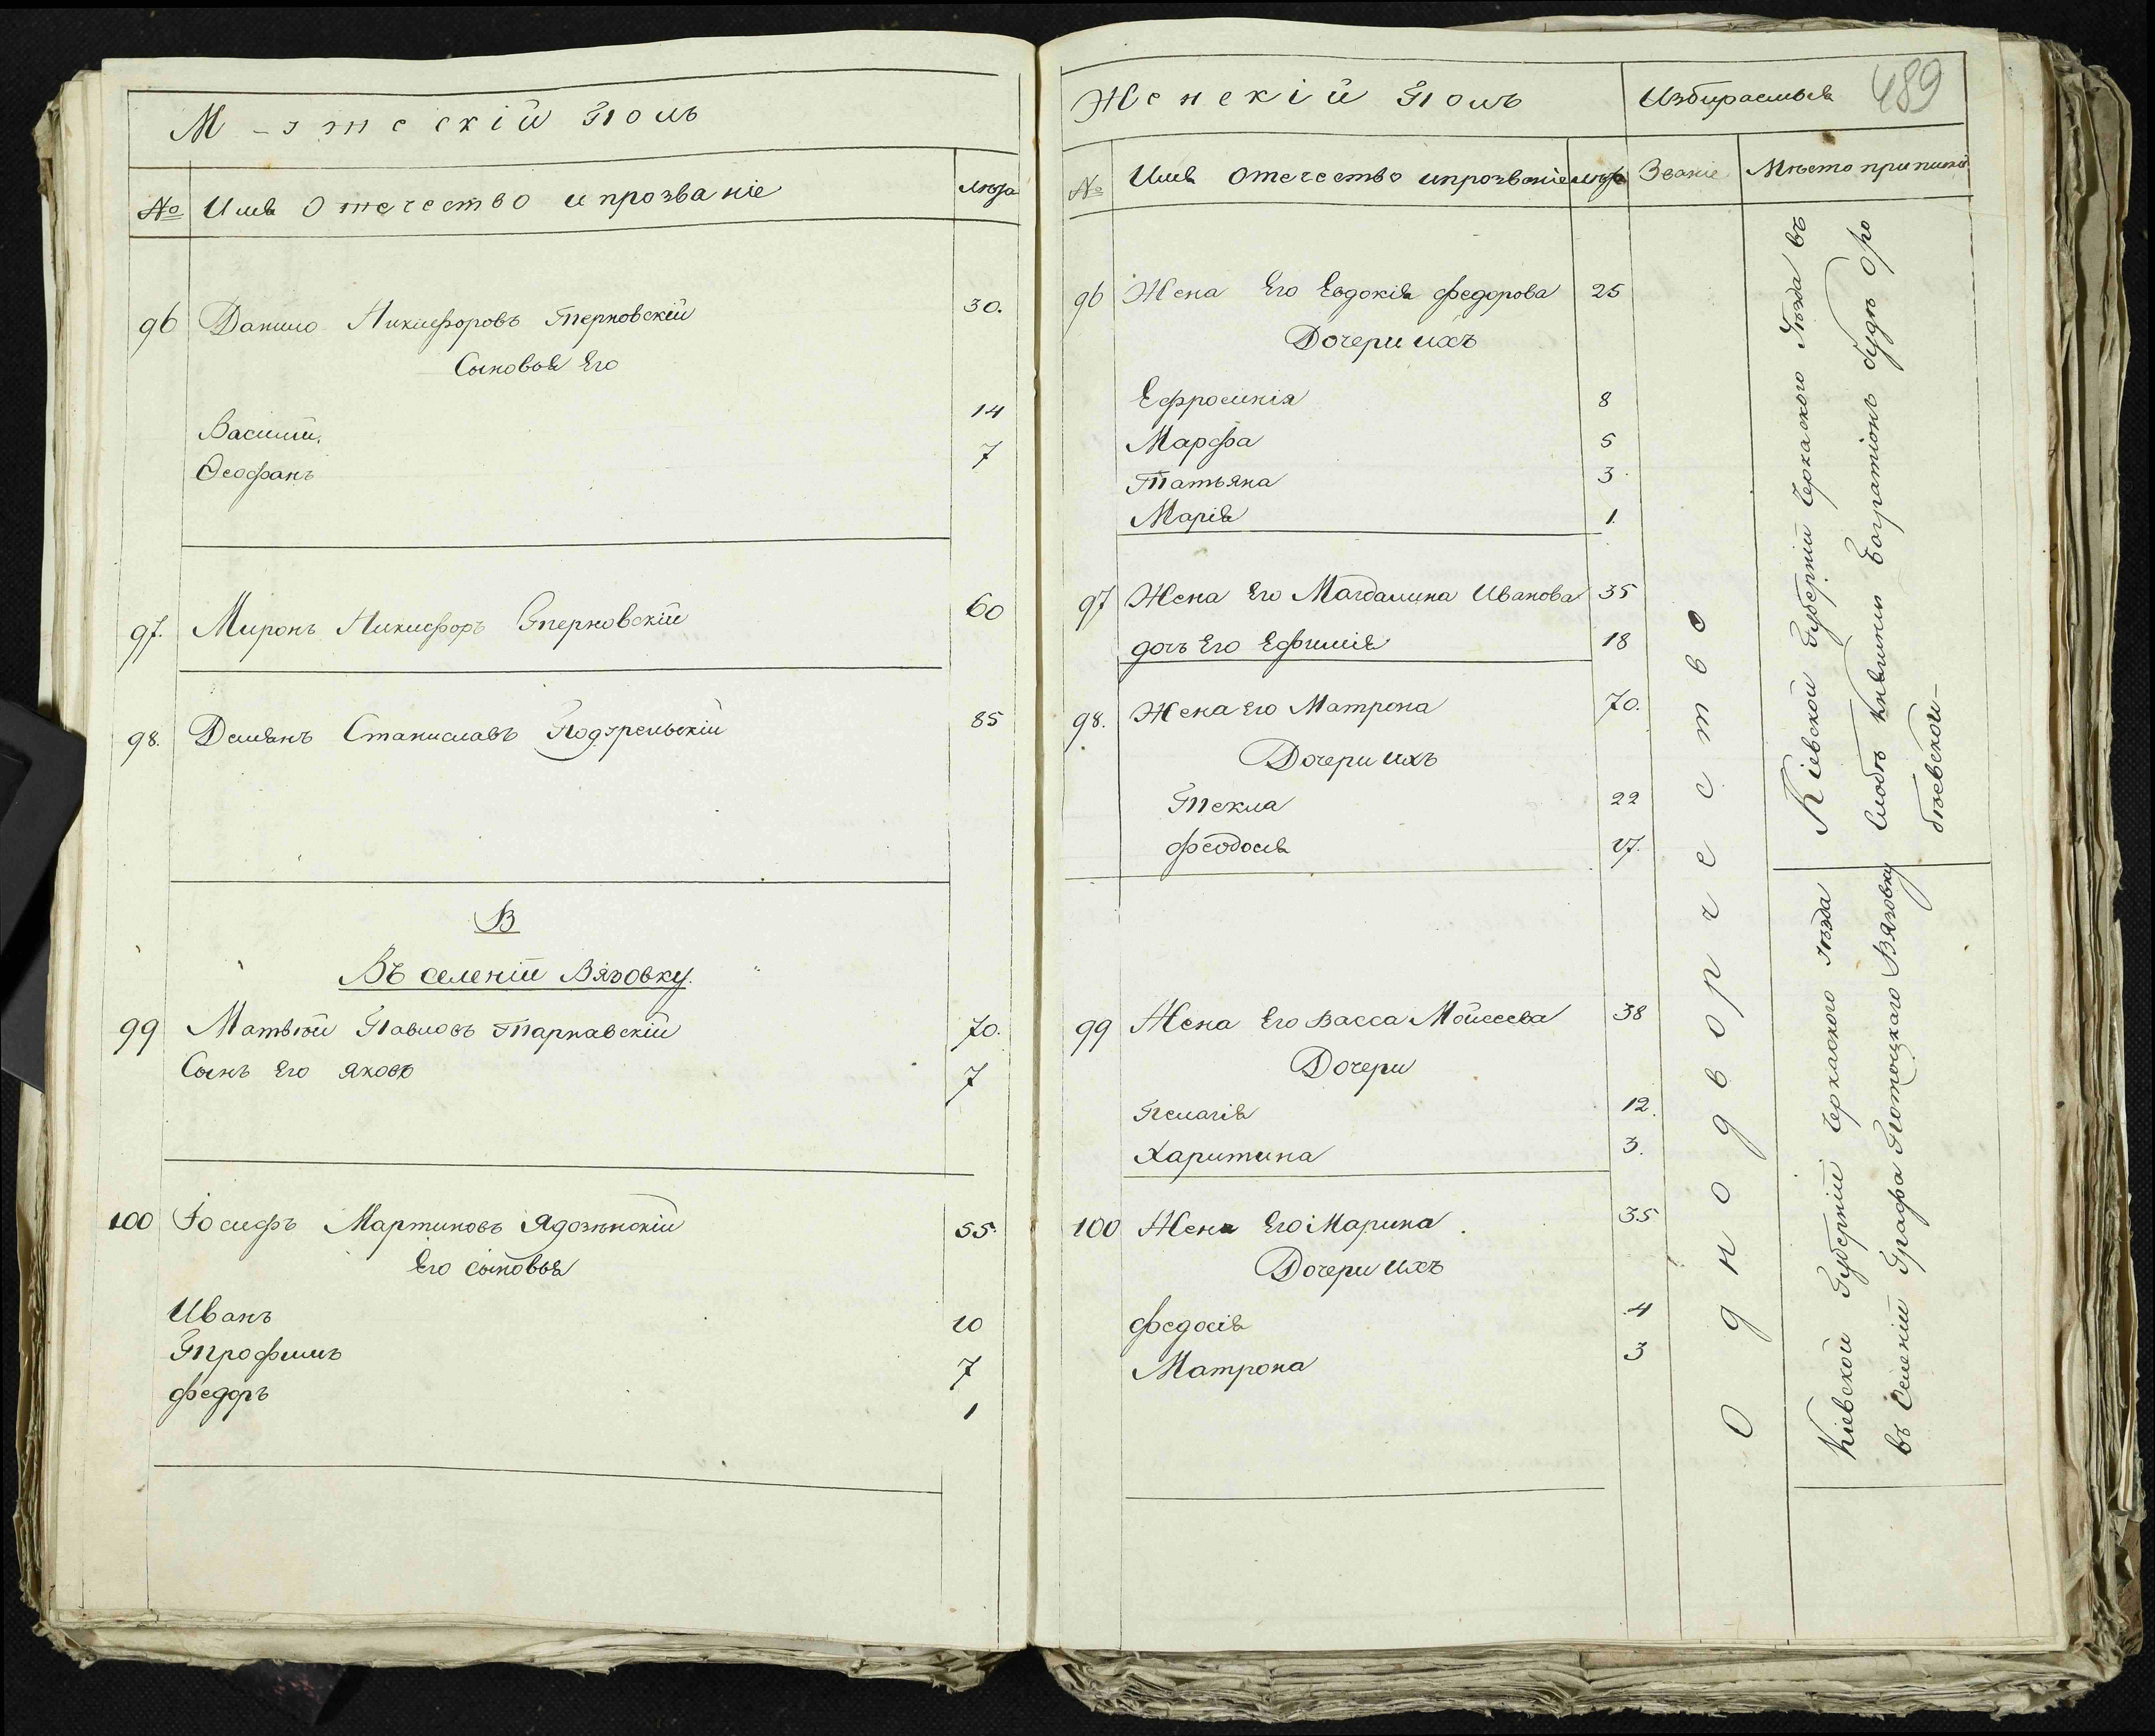 Мужескій Полъ
№ Имя Отечество и прозваніе Лѣта
96 Данило Никифоровъ Терновскій 30.
Сыновья Его
Василій. 14
Ѳеофанъ 7
97. Миронъ Никифоръ Терновскій 60
98. Демянъ Станиславъ 85
В
Въ селеніи Вязовку.
99 Матвѣй Павловъ Тарнавскій 70.
Сынъ Его Яковъ 7
100 Іосифъ Мартиновъ 55.
Его сыновья
Иванъ 10
Трофимъ 7
Федоръ 1
489
Женскій Полъ Избираемыя
№ Имя Отечество и прозваніе Лѣта Званіе Мѣсто приписки
96 Жена Его Евдокія Федорова 25
Дочери ихъ
Ефросинія 8
Марфа 5
Татьяна 3
Марія 1.
97 Жена Его Магдалина Иванова 35
дочь Его Ефимія 18
98. Жена Его Матрона 70.
Дочери ихъ
Текла 22
Феодосія 17.
99 Жена Его Васса Моисеева 38
Дочери
Пелагія 12.
Харитина 3.
100 Жена Его Марина 35
Дочери ихъ
Федосія 4
Матрона 3
Однодворчество
Кіевской Губерніи Черкаского Уѣзда въ
Слобѣ Княгини Багратіонъ будѣ Оро
бѣевской-
Кіевской Губерніи Черкаского Уѣзда
въ Селеніи Графа Потоцкаго Вязовку